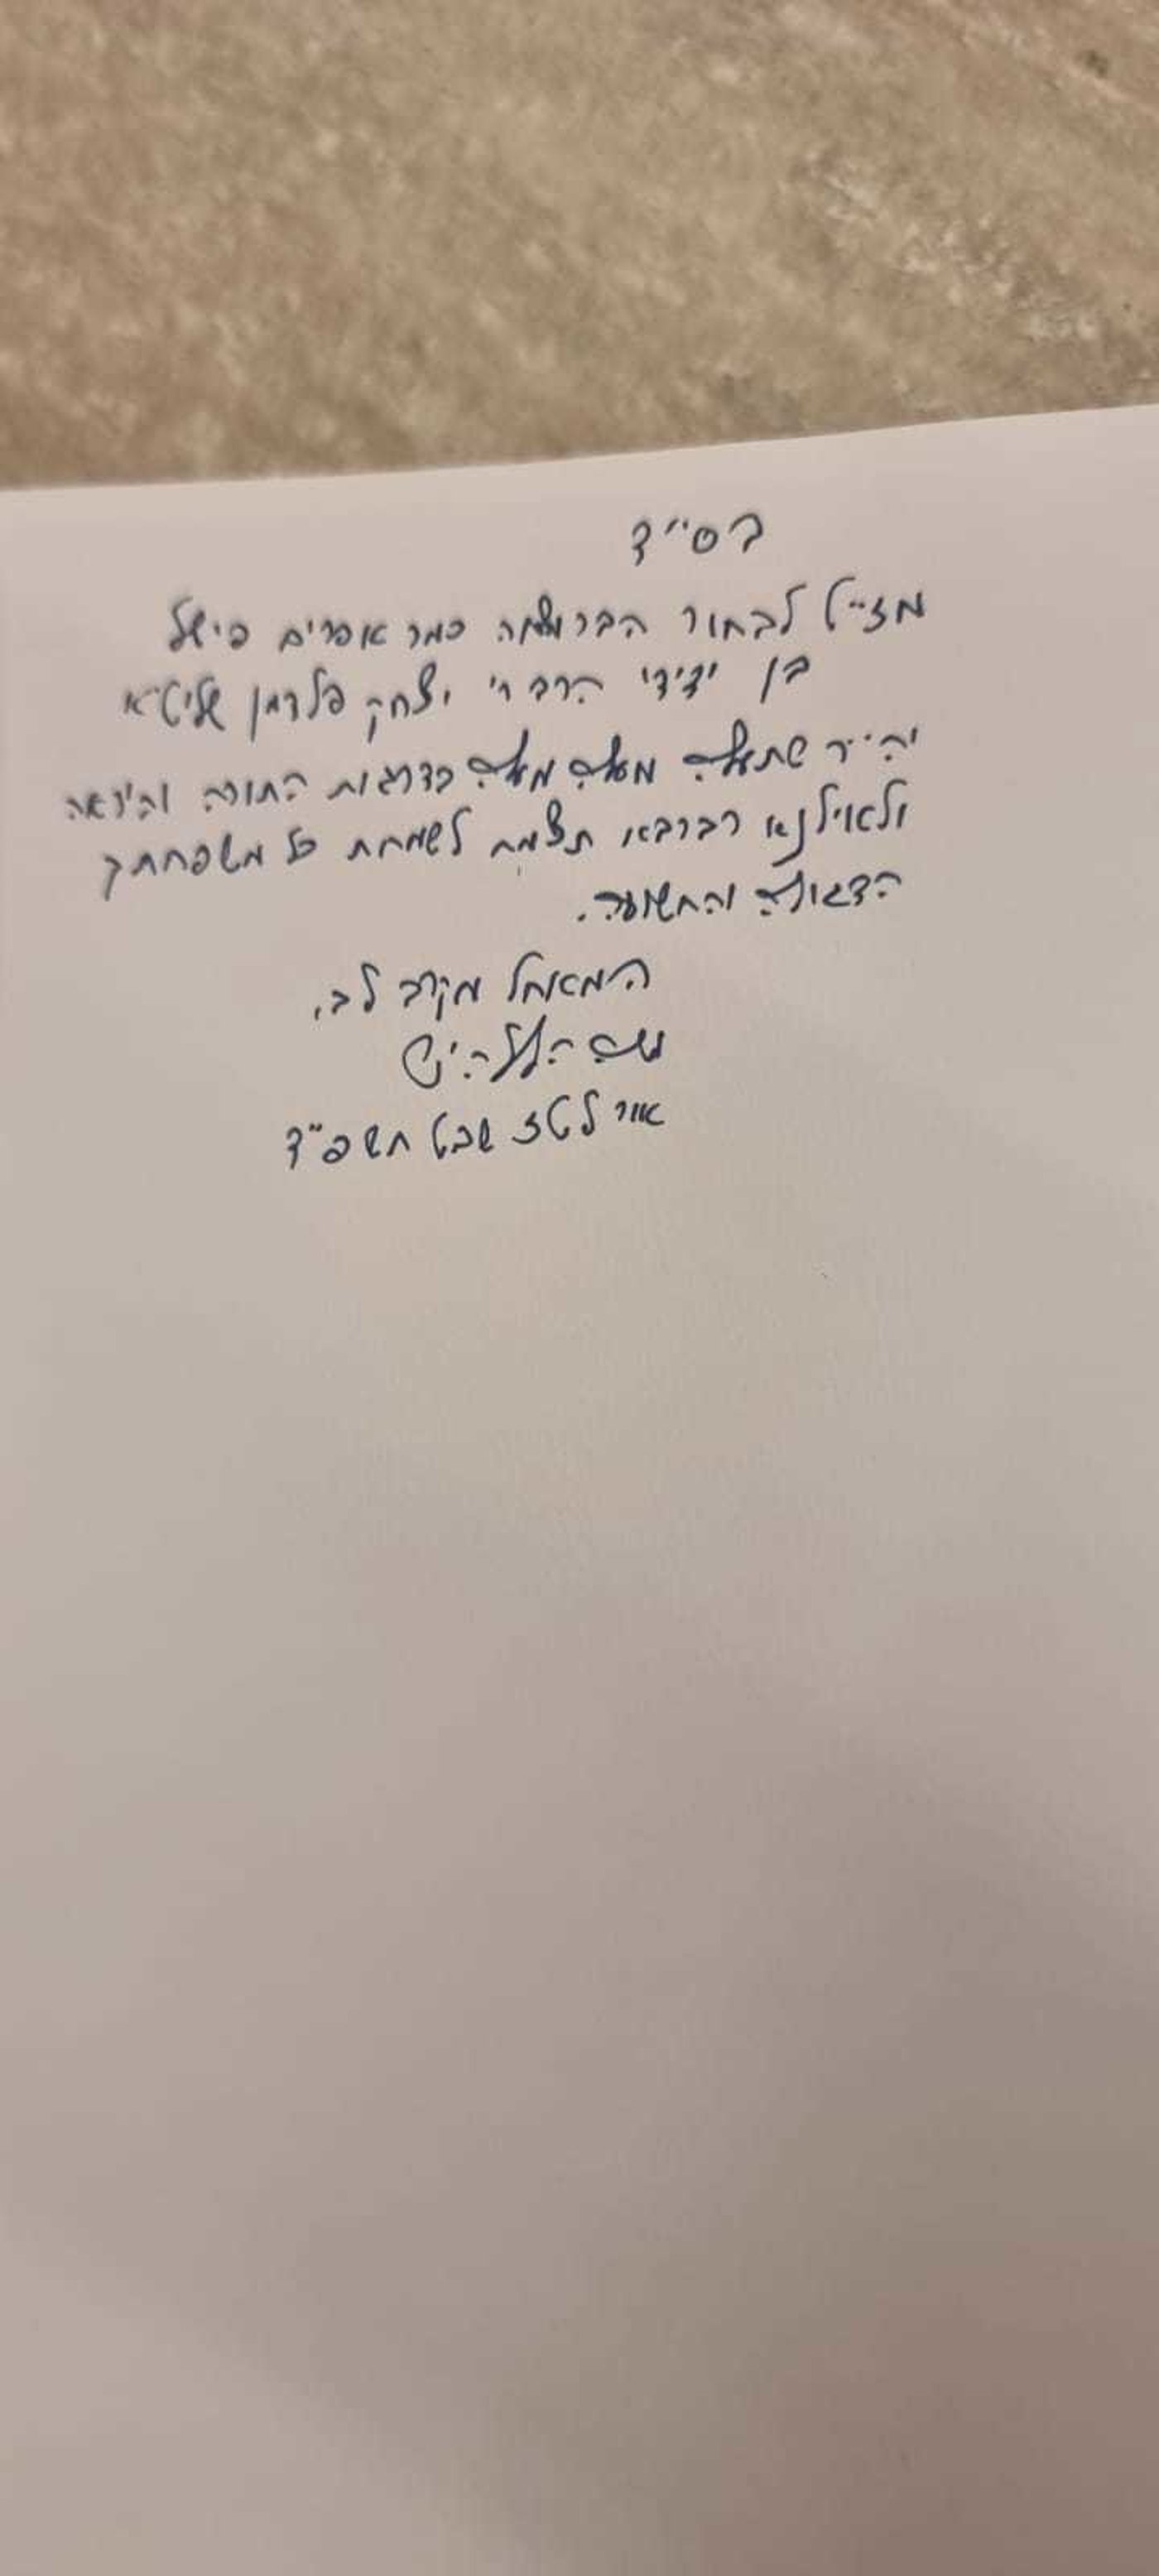 בס"ד
מז"ט לבחור הבר מצוה כמר אפרים פישל
בן ידידי הרב ר' יצחק פלדמן שליט"א
יה"ר שתעלה מעלה מעלה בדרגות התורה והיראה
ולאילנא רברבא תצמח לשמחת כל משפחתך
הדגולה והחשובה.
המאחל מקרב לב,
משה
אור לטז שבט תשפ"ד